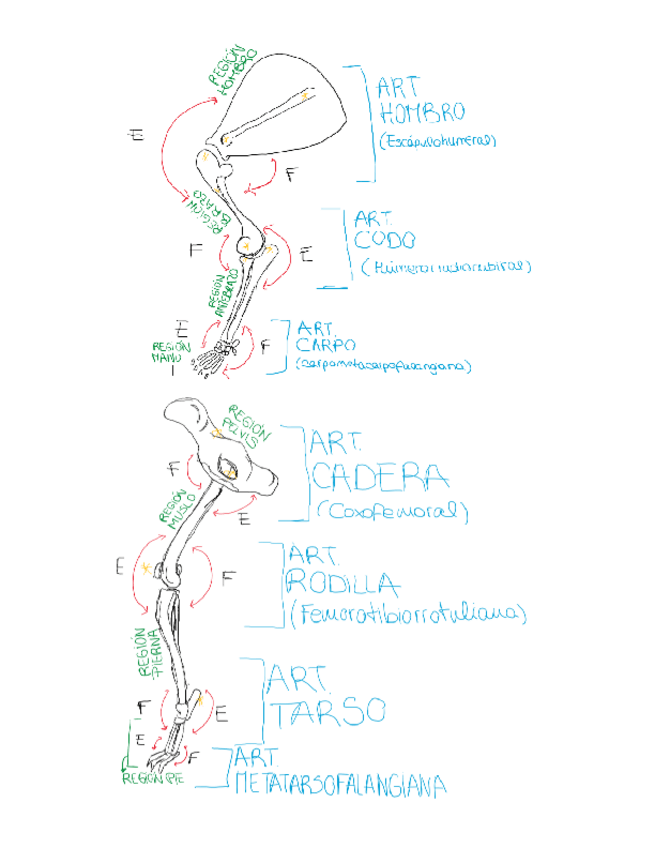 REGIÓN
HOMBRO
ART
HOMBRO
(Escápulohumeral)
E
F
REGIÓN
BRAZO
ART.
CODO
F
E
REGIÓN
ANTEBRAZO
E
REGIÓN
MANO
F
ART.
CARPO
REGIÓN
PELVIS
ART.
CADERA
(Coxofemoral)
F
E
REGIÓN
MUSLO
ART.
RODILLA
(Femorotibiorrotuliana)
E
F
REGIÓN
PIERNA
ART.
TARSO
F
E
E
F
REGIÓN PIE
ART.
METATARSOFALANGIANA